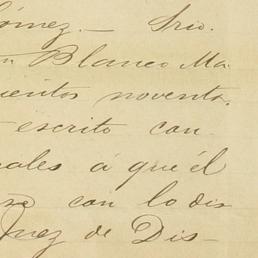 ómez.— Srio.
n Blanco Ma
uientos noventa.
escrito con
nales á que él
se con lo dis
Juez de Dis—